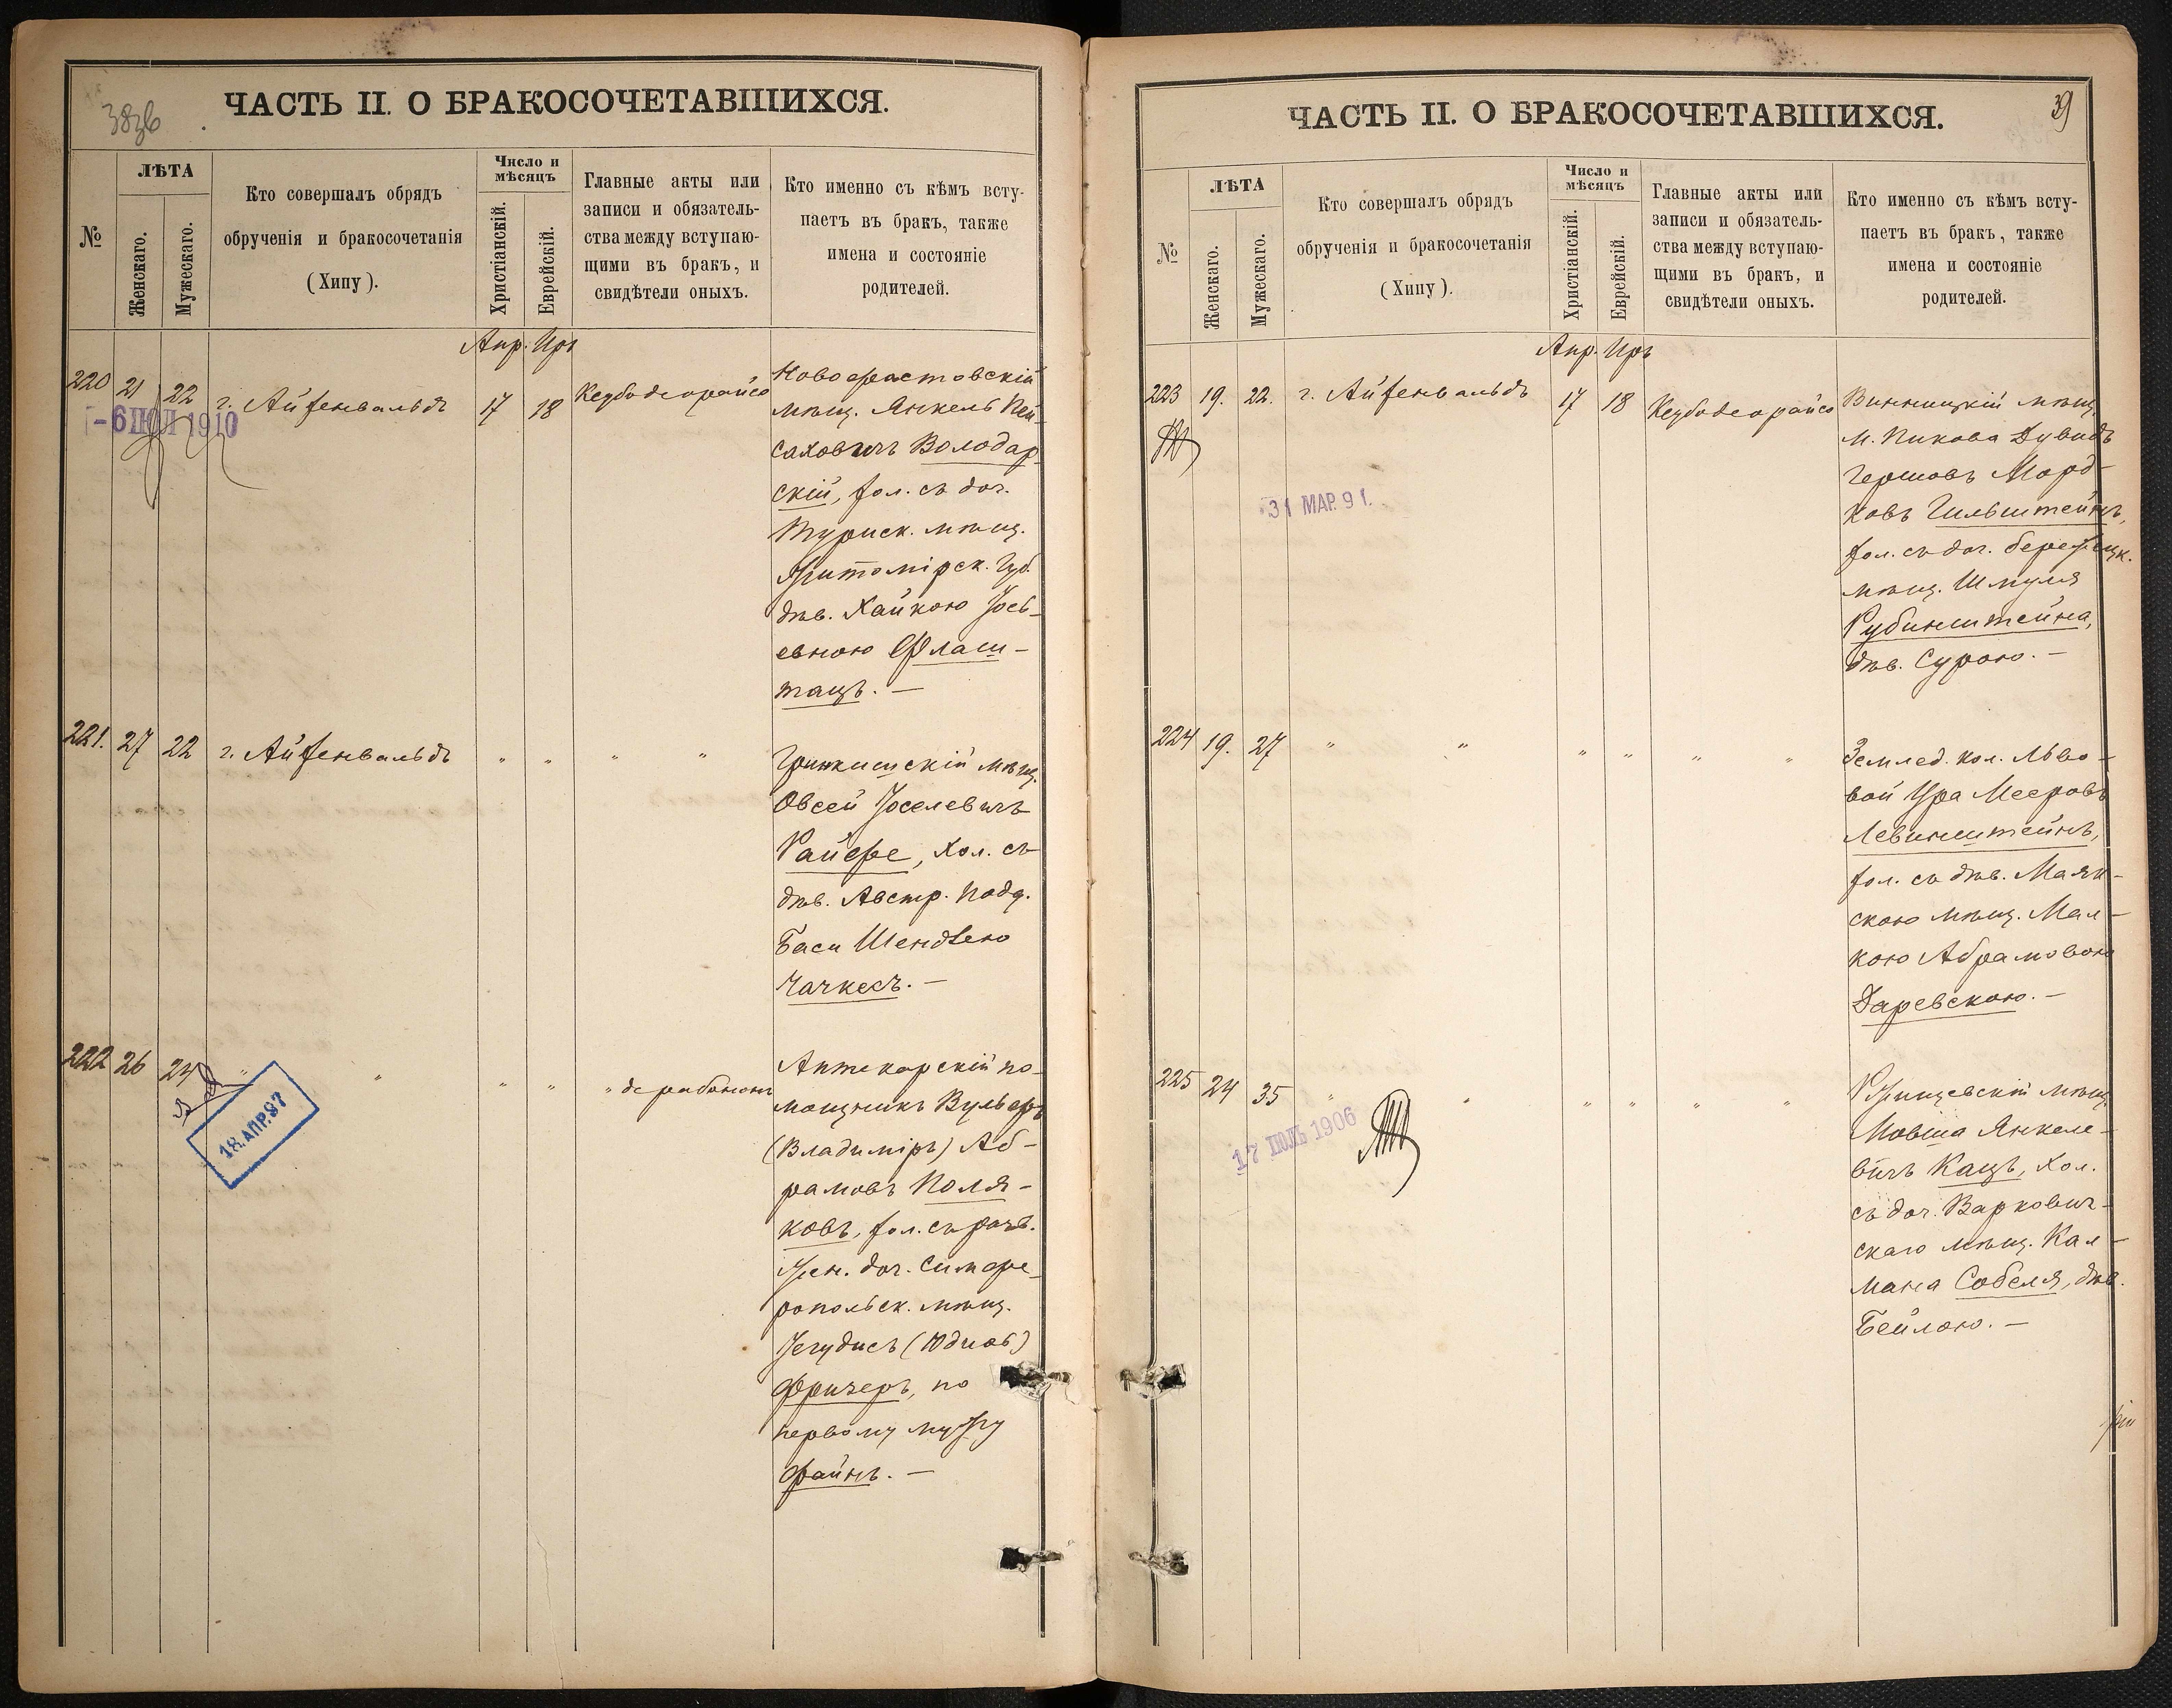 38об
ЧАСТЬ II. О БРАКОСОЧЕТАВШИХСЯ.
№
ЛѢТА
Женскаго.
Мужескаго.
Кто совершалъ обрядъ
обрученія и бракосочетанія
(Хипу).
Число и
мѣсяцъ
Христіанскій.
Еврейскій.
Главные акты или
записи и обязатель-
ства между вступаю-
щими въ бракъ, и
свидѣтели оныхъ.
Кто именно съ кѣмъ всту-
паетъ въ бракъ, также
имена и состояніе
родителей.
Апр. Иръ
220 21 22 г. Айзенвальдъ 17 18 Кеубодеорайсо
-6 ІЮЛ 1910
Новофастовскій
мѣщ. Янкель Пей-
саховичъ Володар-
скій, хол. съ доч.
Туриск. мѣщ.
Житомірск. Губ.
дѣв. Хайкою Іось-
евною Флаш-
тацъ. —
221. 27 22 г. Айзенвальдъ " " " "
Гринкишскій мѣщ.
Овсей Іоселевичъ
Райфе, хол. съ
дѣв. Австр. подд.
Баси Шендлею
Чачкесъ. —
222 26 24 " " " " " дерабонон
18.АПР.87
Аптекарскій по-
мощникъ Вульфъ
(Владиміръ) Аб-
рамовъ Поля-
ковъ, хол. съ разв.
жен. доч. Симфе-
ропольск. мѣщ.
Іегудисъ (Юдиѳь)
Фричеръ, по
первому мужу
Файнъ. —
39
ЧАСТЬ II. О БРАКОСОЧЕТАВШИХСЯ.
№
ЛѢТА
Женскаго.
Мужескаго.
Кто совершалъ обрядъ
обрученія и бракосочетанія
(Хипу).
Число и
мѣсяцъ
Христіанскій.
Еврейскій.
Главные акты или
записи и обязатель-
ства между вступаю-
щими въ бракъ, и
свидѣтели оныхъ.
Кто именно съ кѣмъ всту-
паетъ въ бракъ, также
имена и состояніе
родителей.
Апр. Иръ
223 19. 22. г. Айзенвальдъ 17 18 Кеубодеорайсо
31 МАР. 91.
Винницкій мѣщ.
м. Пикова Дувидъ
Гершовъ Морд-
ковъ Гильштейнъ,
хол. съ доч. березецк.
мѣщ. Шмуля
Рубинштейна,
дѣв. Сурою. —
224 19. 27 " " " " " "
Землед. кол. Льво-
вой Ура Мееровъ
Левинштейнъ,
хол. съ дѣв. Маяк-
скою мѣщ. Мал-
кою Абрамовою
Даревскою. —
225 24 35 " " " " " "
17 ІЮЛЬ 1906
Ржищевскій мѣщ.
Мовша Янкеле-
вичъ Кацъ, хол.
съ доч. Варкович-
скаго мѣщ. Кал-
мана Собеля, дѣв.
Бейлою. —